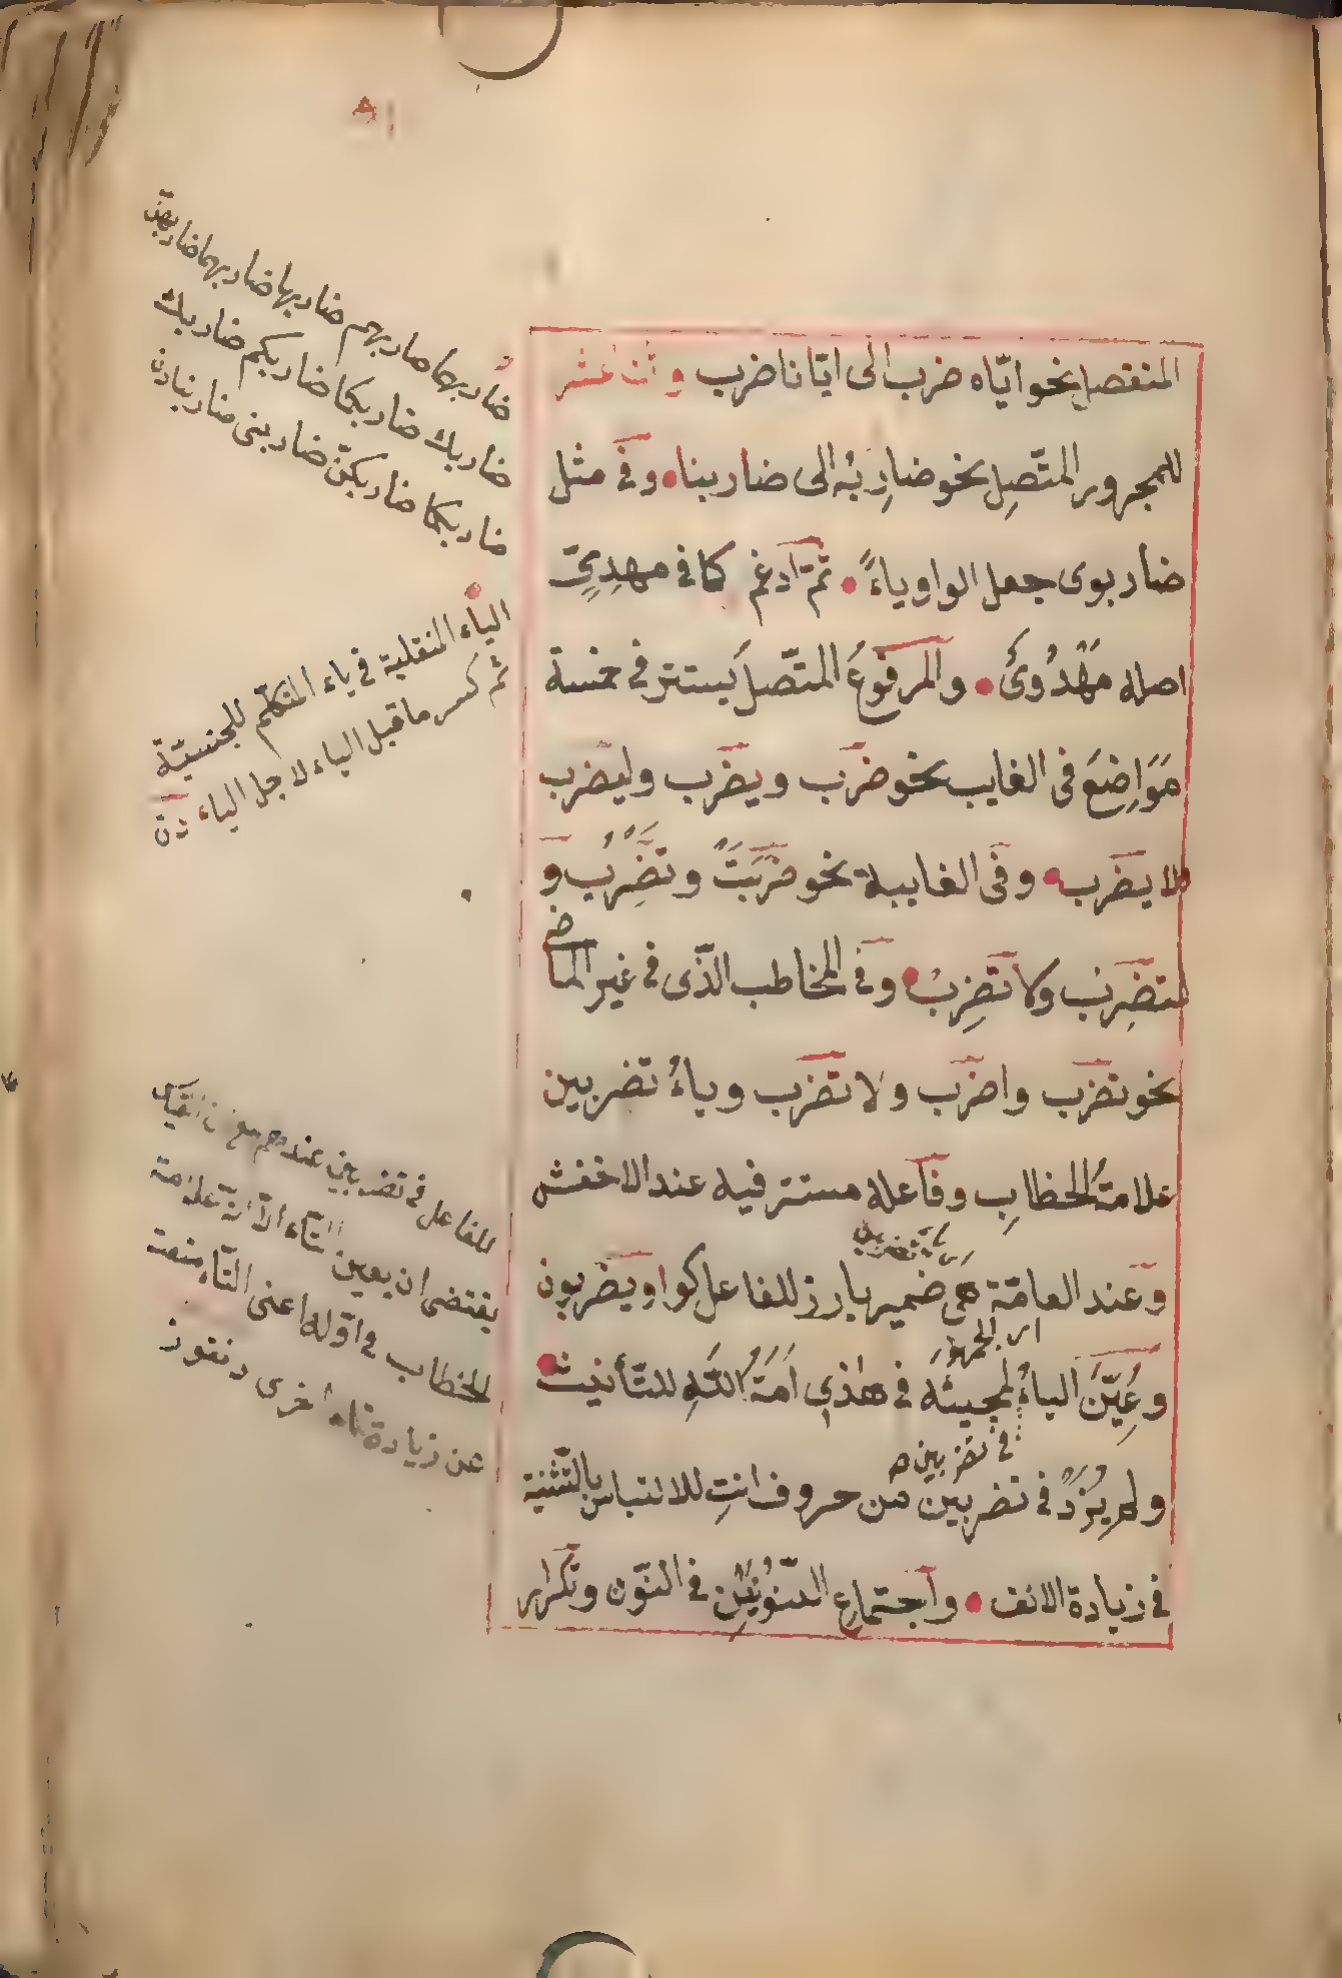 ٨١
المنفصل نحو ايّاه ضرب الى ايّانا ضرب و اثنا عشر
للمجرور المتّصِل نحو ضارِبُه الى ضاربنا وفى مثل
ضاربوى جعل الواو ياءً ثمّ ادغم كما فى مهدِيٍّ
اصله مَهْدُوْىٌ والمرفوعُ المتّصلُ يستتر فى خمسة
مَوَاضِعَ فى الغايب نحو ضرَب ويضرب وليضرب
ولا يضرب وفى الغايبة نحو ضَرَبَتْ وتضْرِبُ و
لتضرِبْ ولا تضرِبْ وفى المخاطب الذّى فى غير الماضى
نحو تضرب واضرب ولا تضرب وياءُ تضربين
علامةُ الخطابِ وفاعله مستتر فيه عند الاخفش
اى ياء تضربين
وعند العامّة هى ضمير بارز للفاعل كواو يضربون
اى الجمهور
وعُيِّنَ الياءُ لمجيئه فى هٰذِى اَمَةُ اللّهِ للتّأنيث
فى تضربين
ولم يُزَدْ فى تضربين من حروف انتِ للالتباس بالتّثنية
فى زيادة الالف واجتماعِ النّونَيْنِ فى النّون وتكرار
ضاربهما ضاربهم ضاربها ضاربهما ضاربهنّ
ضاربك ضاربكما ضاربكم ضاربك
ضاربكما ضاربكنّ ضاربنى ضاربنا
الياء المنقلبة فى ياء المتكلّم للجنسيّة
ثم كسر ما قبل الياء لاجل الياء
للفاعل فى تضربين عندهم
يقتضى ان يعين التّاء الّا انّ علامة
الخطاب فى اوّله اعنى التّاء منعت
عن زيادة تاء اخرى